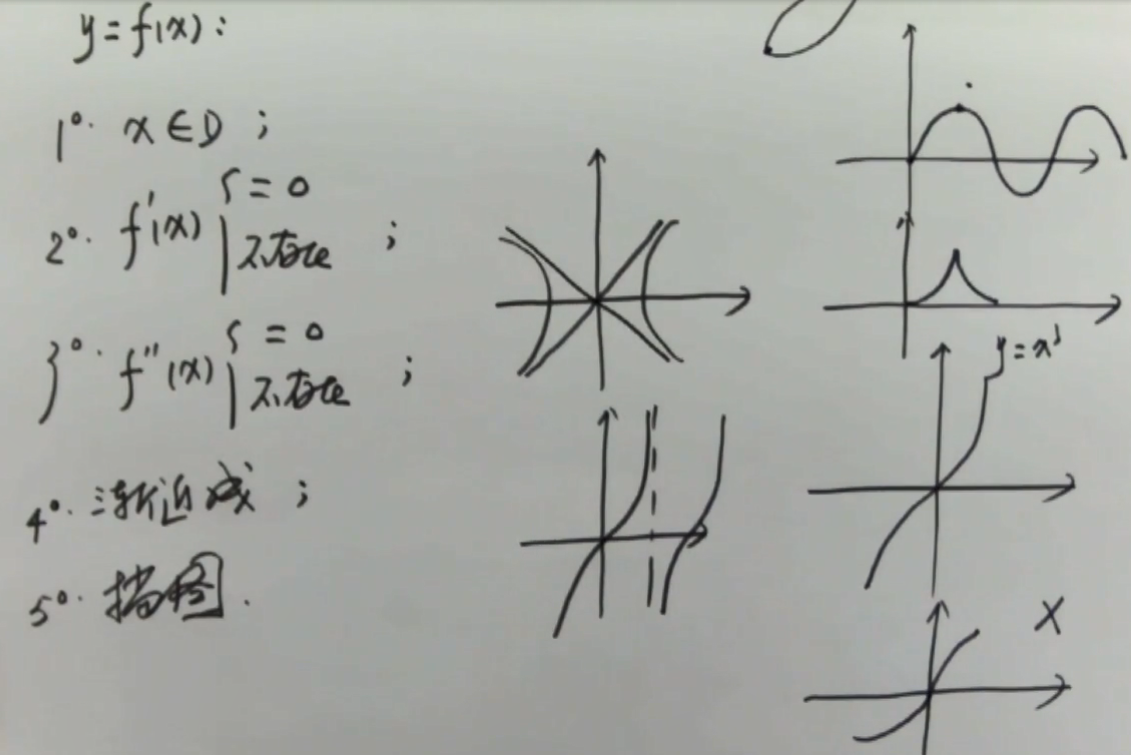 y = f(x) :
1°. x ∈ D ;
2°. f'(x) { = 0
不存在 ;
3°. f''(x) { = 0
不存在 ;
4°. 渐近线 ;
5°. 描图 .
y = x³
X